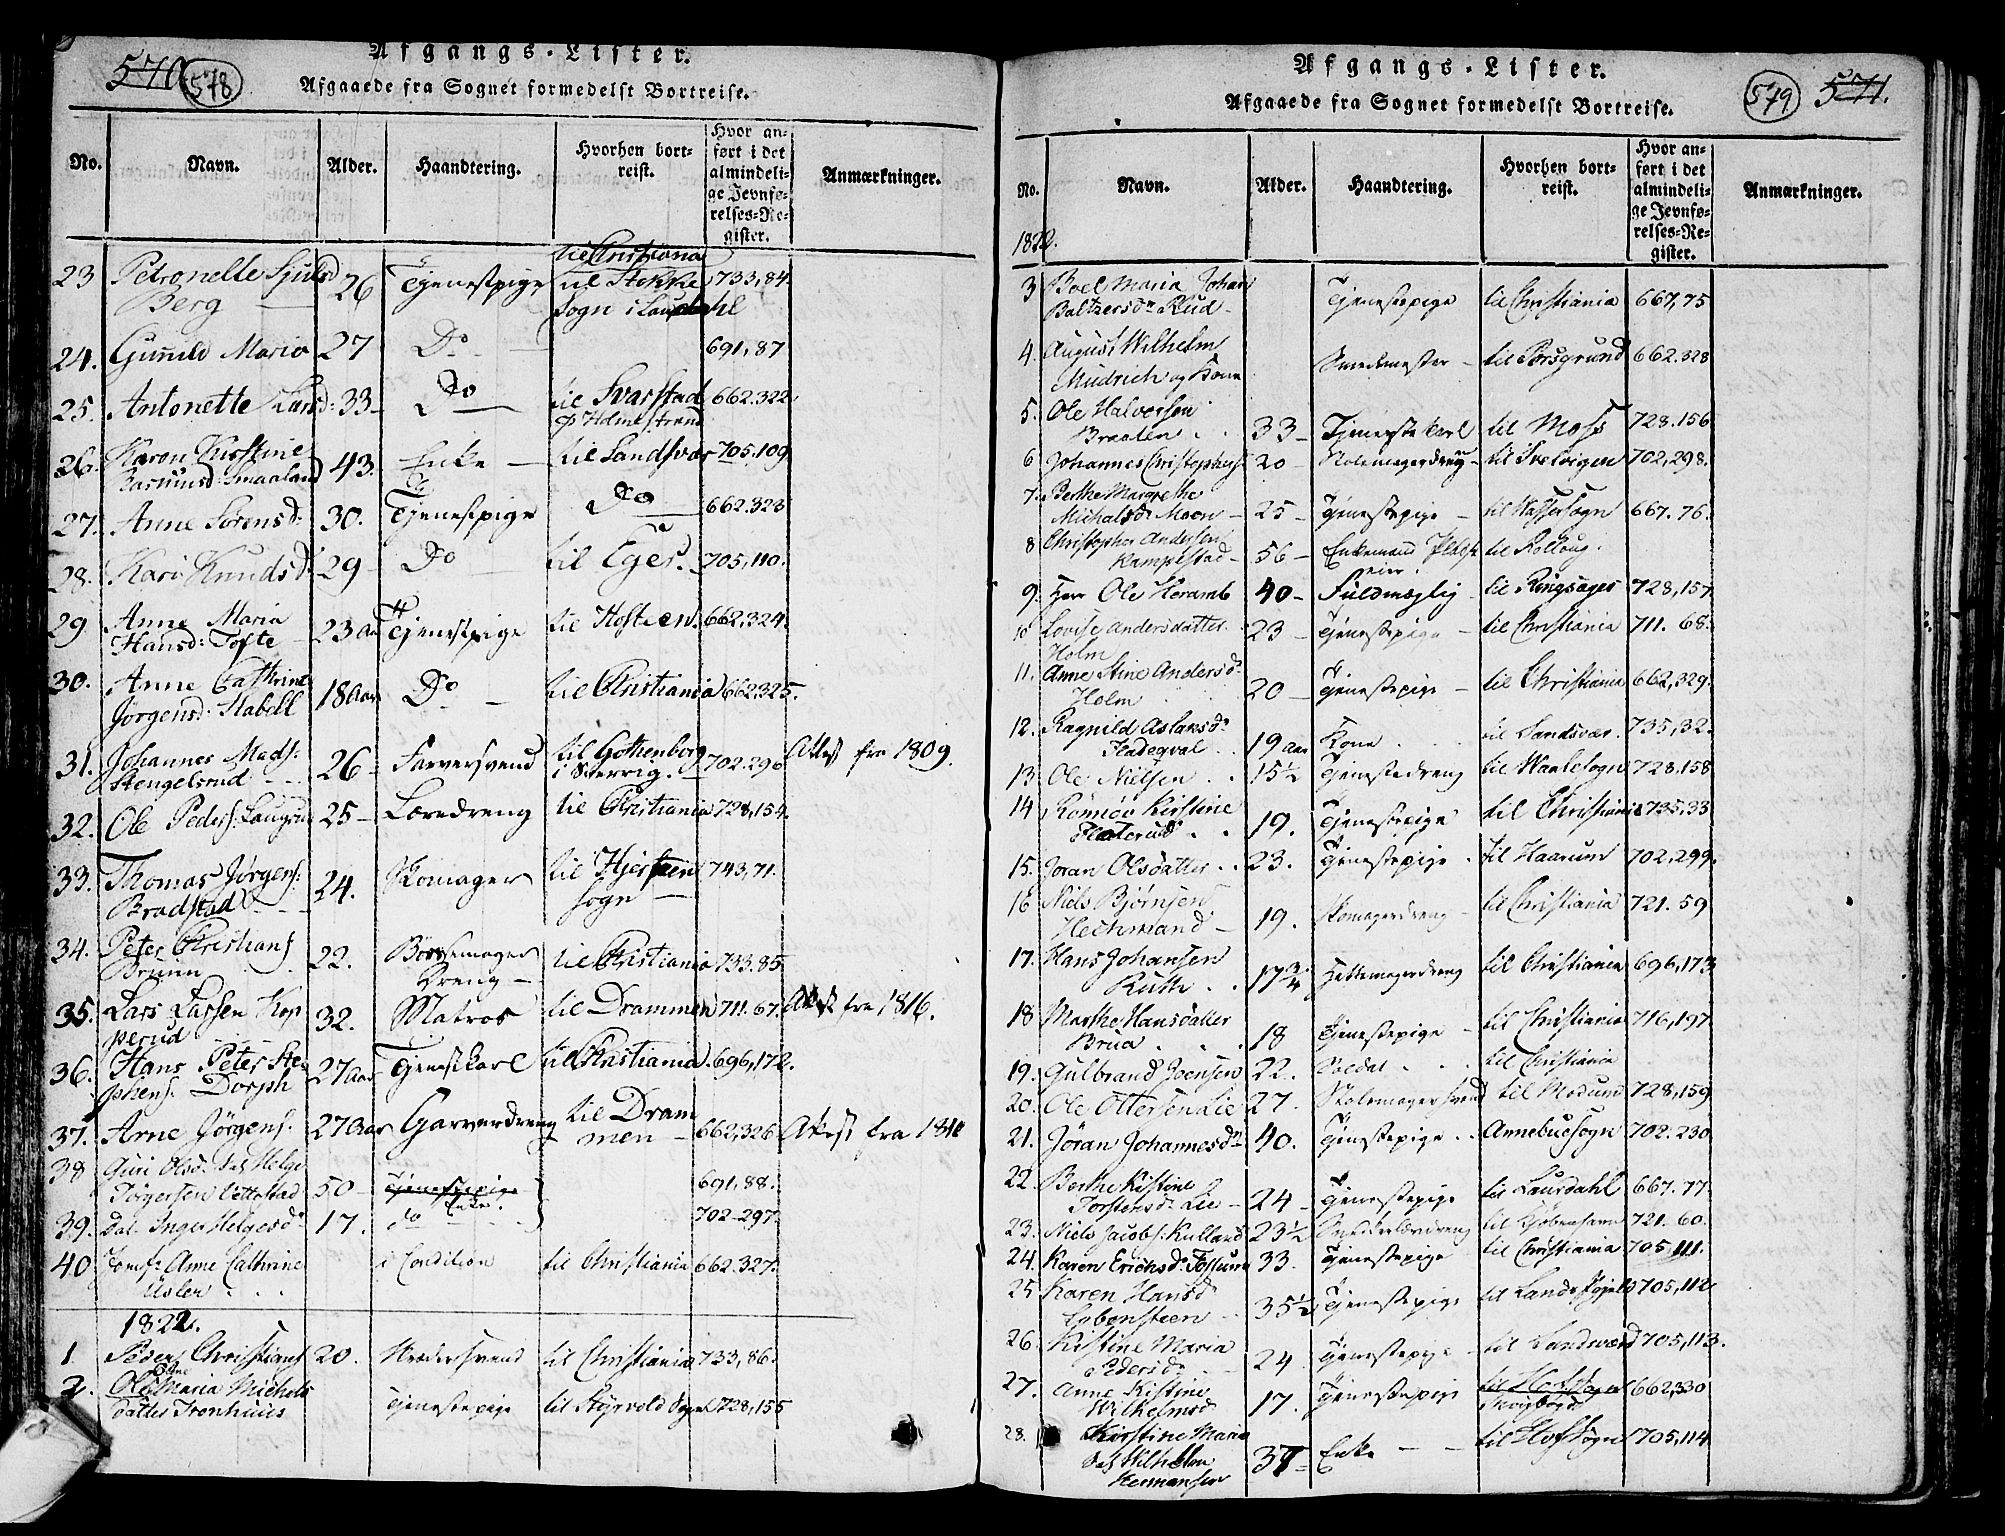 570 578
Afgangs-Lister.
Afgaaede fra Sognet formedelst Bortreise.
No. Navn. Alder. Haandtering. Hvorhen bortreist. Hvor anført i det almindelige Jevnførelses-Register. Anmærkninger.
til Christiana
23 Petronelle 26 Tjenestpige til Stokke 733,84.
Berg Sogn i
24. Gunild Maria 27 Do 691,87
25. Antonette Larsd: 33 Do til Svarstad 662.322.
Holmestrand
26. Karen Kirstine 43. Enke til Sandsvær 705.109
Rasmusd: Smaaland
27. Anne Sørensd: 30. Tjenestpige Do 662.323
28. Kari Knudsd: 29 Do til Eger. 705,110.
29. Anne Maria 23 Aar Tjenestpige til Hosteen. 662,324.
Hansd: Tofte
30. Anne Cathrine 18 Aar Do til Christiania 662,325.
Jørgensd: Stabell
31. Johannes Mads: 26 Farversvend til Gothenborg 702.296 Attest fra 1809.
Stengelsrud i Sverrig.
32. Ole Peders: 25 Læredreng til Christiania 728,154.
33. Thomas Jørgens: 24. Skomager til 743,71.
Bradstad sogn
34. Peter Christians 22. Bøssemager til Christiania 733.85
Brunn Dreng
35. Lars Larsen Kop 32. Matros til Drammen 711.67. Attest fra 1816.
perud
36. Hans Peter Ste 27 Aar Tjenestkarl til Christiania. 696,172.
phens: Dorph
37. Arne Jørgens: 27 Aar Garverdreng til Dram 662,326 Attest fra 1810
men
38 Guri Olsd:
Torgersen 50 Tjenestepige 691,88.
Enke.
39. Dat. Inger Helgesd: 17. do 702-297.
40 Jomf: Anne Cathrine i Condition til Christiania 662.327.
Uslen
1822.
1. Peder Christians 20. til Christiania 733,86.
2. Ole Maria Michels
datter Tronhuus Tjenestepige til Sogn 728,155
Afgangs-Lister.
Afgaaede fra Sognet formedelst Bortreise.
579 571.
No. Navn. Alder. Haandtering. Hvorhen bortreist. Hvor anført i det almindelige Jevnførelses-Register. Anmærkninger.
1822.
3 Boel Maria Johan Tjenestepige til Christiania 667,75
Baltzersdr Rud
4. August Wilhelm Smedmester til Porsgrund 662.328
Mudrich og Kone
5. Ole Halvorsen
Braaten 33 Tjenestekarl til Moss 728.156
6 Johannes Christophers: 20 Stolemagerdreng til Svelvigen 702,298.
7. Berthe Margrethe
Michalsdr Moen 25 Tjenestepige til 667.76.
8 Christopher Andersen
56 Enkemand Plads til Rolloug.
eier.
9. Herr Ole Heramb 40 Fuldmægtig til Ringsager 728,157
10 Lovise Andersdatter 23 Tjenestepige til Christiania 711.68.
Holm
11. Anne Stine Andersdr
Holm 20 Tjenestepige til Christiania 662,329.
12. Ragnild Aslaksdr
19 Aar Kone til Sandsvær. 735,32.
13. Ole Nielsen 15½ Tjenestedreng til Waalesogn 728,158
14 Kirstine
19. Tjenestepige til Christiania 735,33
15. Joran Olsdatter 23. Tjenestepige til Haarum 702,299.
16 Niels Bjørnsen
Hechmand 19. Skomagerdreng til Christiania 721.59
17. Hans Johansen
Ruth 17¾ Hattemagerdreng til Christiania 696,173
18 Marthe Hansdatter
Brua 18 Tjenestepige til Christiania 716,197
19. Gulbrand Joensen 22. Soldat til Christiania
20. Ole Ottersen Lie 27. Stolemagersvend til Modum 728,159
21. Jøran Johannesdr 40. Tjenestepige Annebuesogn 702.230
22. Berthe Kistine
Torstensdr Lie 24 Tjenestepige til Laurdahl 667.77
23. Niels Jacobs: Kulland 23½ til Kjøbenhavn 721.60.
24. Karen Erichsdr Fossum 33. Tjenestepige til Christiania 705,111.
25 Karen Hansdr
35½ Tjenestepige til 705,112
26. Kistine Maria
Pedersdr 24 Tjenestepige til Sandsværd 705,113.
27. Anne Kistine
Wilhelmsd 17. Tjenestepige til 662,330
28. Kirstine Marie
Wilhelm 37 Enke til Hofsogn 705,114
Hermansen